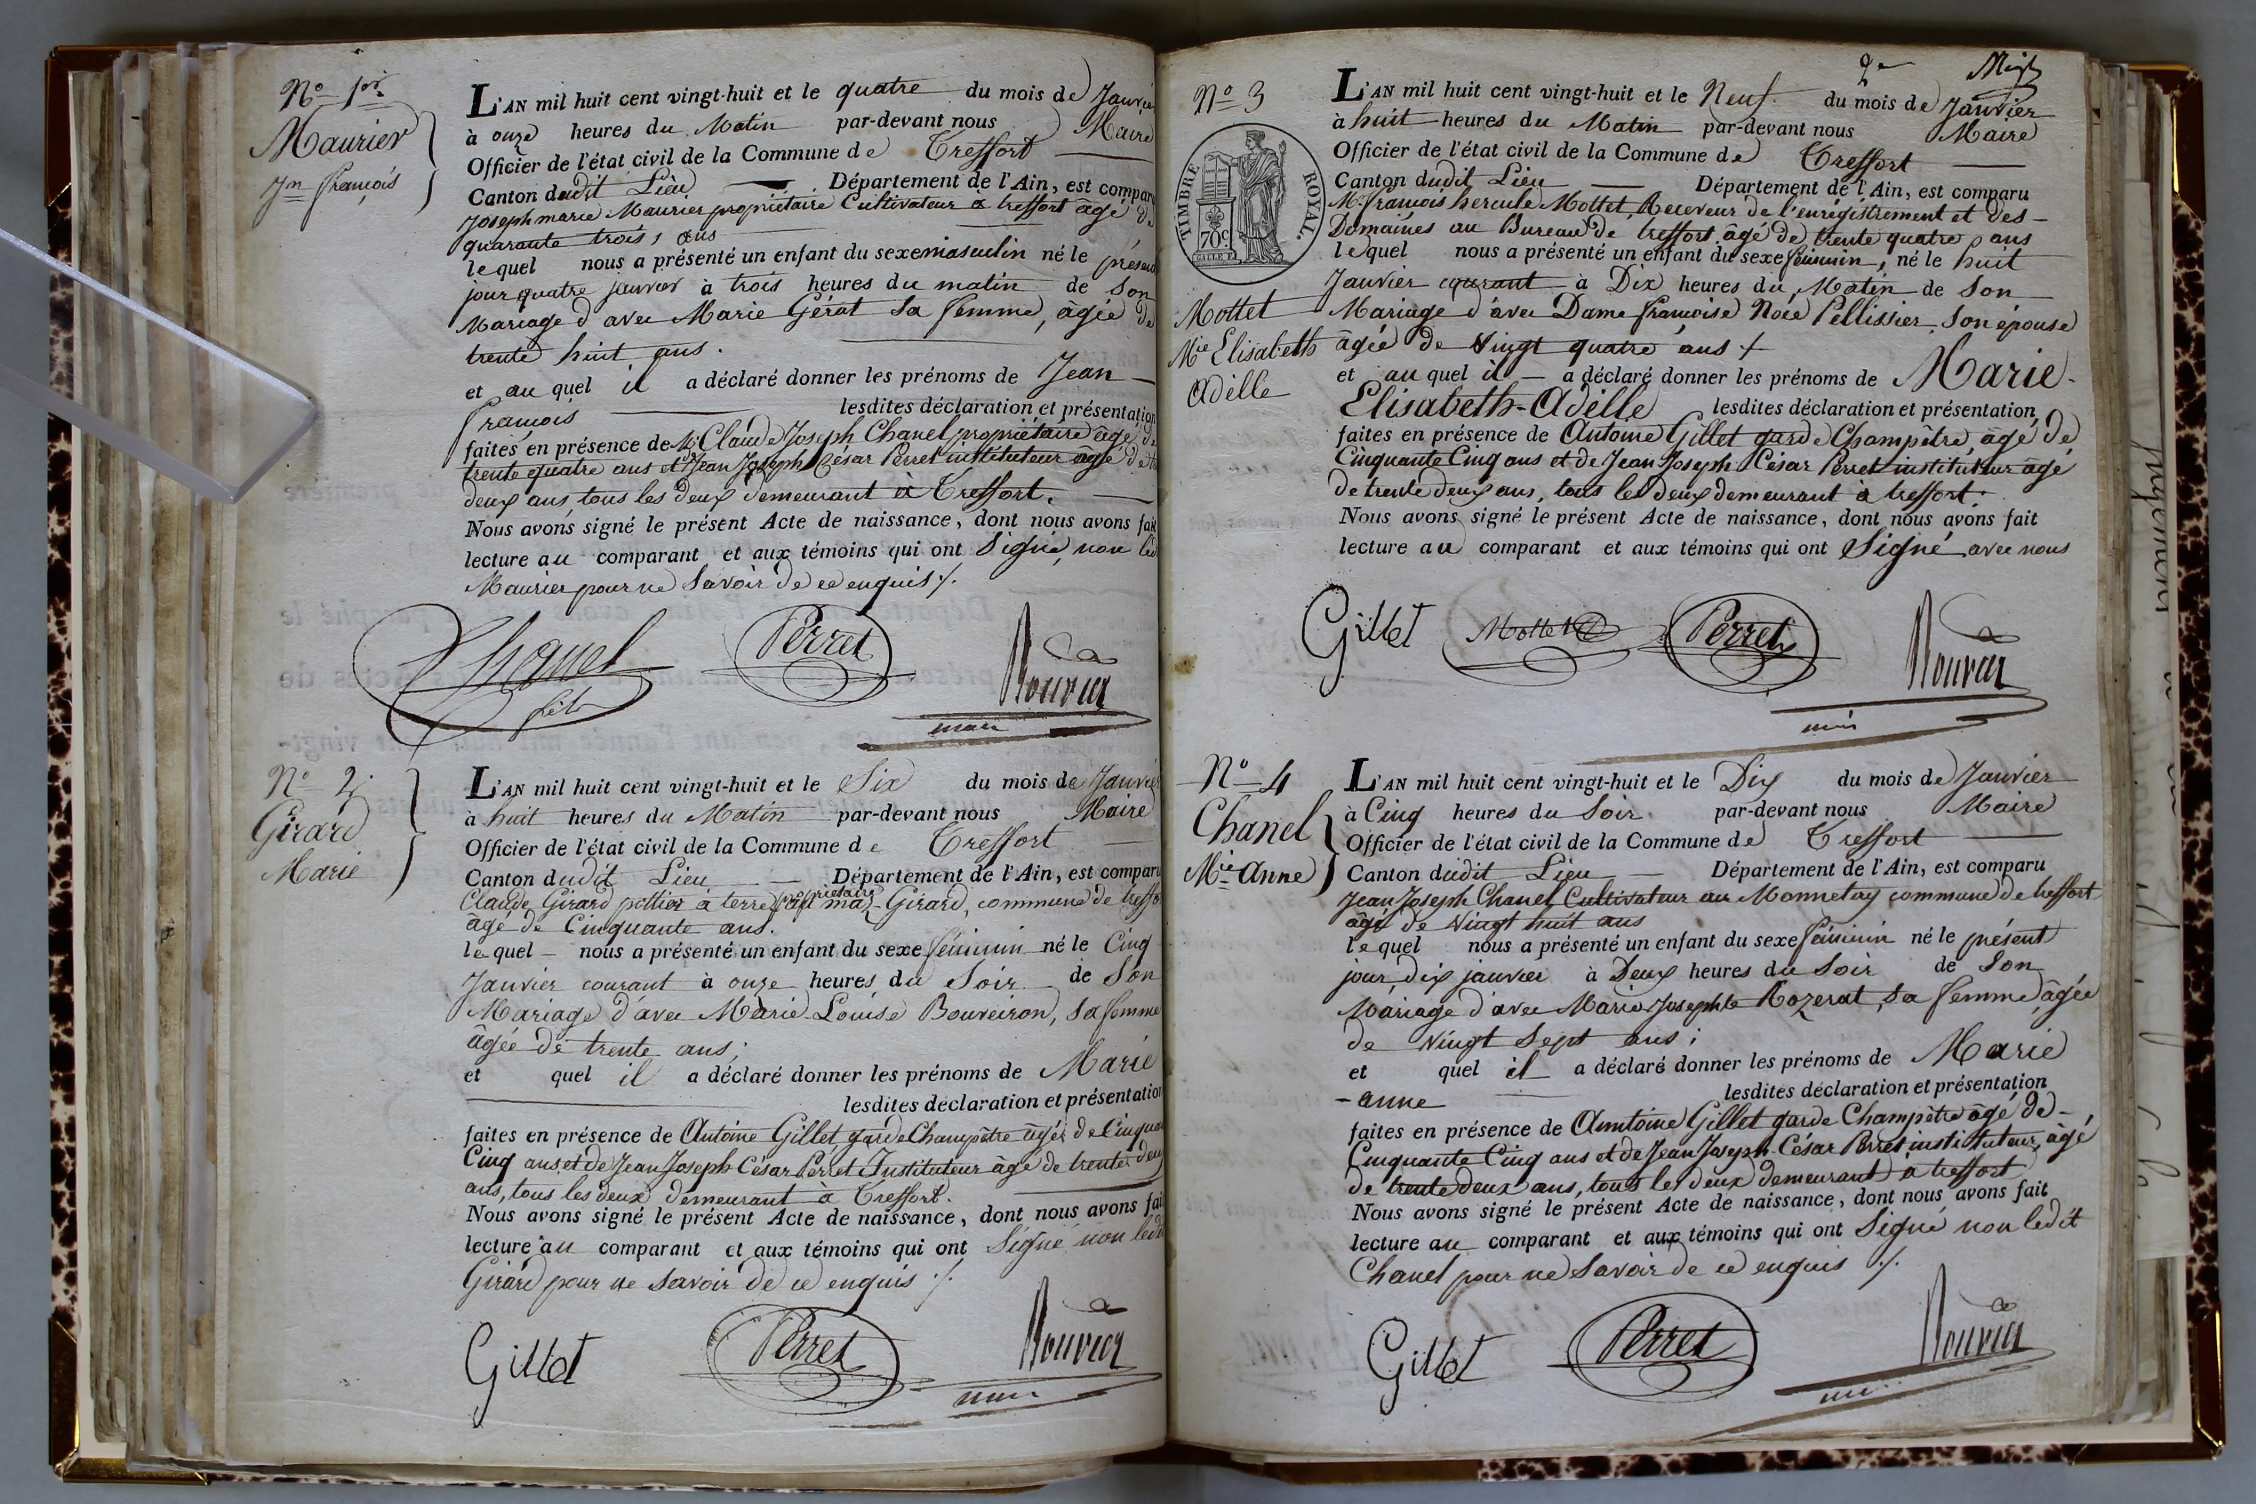 Nº 1er
Maurier
Jn François
L'AN mil huit cent vingt-huit et le quatre du mois de Janvier
à onze heures du Matin par-devant nous Maire
Officier de l'état civil de la Commune de Treffort
Canton dudit Lieu Département de l'Ain, est comparu
Joseph marie Maurier propriétaire Cultivateur a treffort âgé de
quarante trois ans
lequel nous a présenté un enfant du sexe masculin né le présent
jour quatre janvier à trois heures du matin de Son
Mariage d'avec Marie Gérat Sa femme, âgée de
trente huit ans.
et au quel il a déclaré donner les prénoms de Jean
François lesdites déclaration et présentation
faites en présence de Mr Claude Joseph Chanel propriétaire âgé de
trente quatre ans et de Jean Joseph César Perret instituteur âgé de
deux ans, tous les deux demeurant a Treffort.
Nous avons signé le présent Acte de naissance, dont nous avons fait
lecture au comparant et aux témoins qui ont Signé, non led
Maurier pour ne Savoir de ce enquis ./.
Chanel Perret Rouvier
fils
maire
Nº 2.
Girard
Marie
L'AN mil huit cent vingt-huit et le Six du mois de Janvier
à huit heures du Matin par-devant nous Maire
Officier de l'état civil de la Commune de Treffort
Canton dudit Lieu Département de l'Ain, est comparu
propriétaire
Claude Girard pottier à terre Girard, commune de treffort
âgé de Cinquante ans.
lequel nous a présenté un enfant du sexe féminin né le Cinq
Janvier courant à onze heures du Soir de Son
Mariage d'avec Marie Louise Bouveiron, Sa femme
âgée de trente ans;
et quel il a déclaré donner les prénoms de Marie
lesdites déclaration et présentation
faites en présence de Antoine Gillet garde Champêtre âgés de Cinquante
Cinq ans et de Jean Joseph César Perret Instituteur âgé de trente deux
ans, tous les deux demeurant à Treffort.
Nous avons signé le présent Acte de naissance, dont nous avons fait
lecture au comparant et aux témoins qui ont Signé non ledit
Girard pour ne Savoir de ce enquis ./.
Gillet Perret Rouvier
maire
2e
Nº 3
TIMBRE ROYAL.
70c
Mottet
Mie Elisabeth
Adélle
L'AN mil huit cent vingt-huit et le Neuf du mois de Janvier
à huit heures du Matin par-devant nous Maire
Officier de l'état civil de la Commune de Treffort
Canton dudit Lieu Département de l'Ain, est comparu
Mr. françois hercule Mottet, Receveur de l'enregistrement et des
Domaines au Bureau de treffort âgé de trente quatre ans
lequel nous a présenté un enfant du sexe féminin, né le huit
Janvier courant à Dix heures du Matin de Son
Mariage d'avec Dame françoise Noée Pellissier Son épouse
âgée de Vingt quatre ans
et au quel il a déclaré donner les prénoms de Marie
Elisabeth-Adélle lesdites déclaration et présentation
faites en présence de Antoine Gillet garde Champêtre âgé de
Cinquante Cinq ans et de Jean Joseph César Perret instituteur âgé
de trente deux ans, tous les deux demeurant à treffort.
Nous avons signé le présent Acte de naissance, dont nous avons fait
lecture au comparant et aux témoins qui ont Signé avec nous
Gillet Mottet Perret Rouvier
Nº 4
Chanel
Mie Anne
L'AN mil huit cent vingt-huit et le Dix du mois de Janvier
à Cinq heures du Soir par-devant nous Maire
Officier de l'état civil de la Commune de Treffort
Canton dudit Lieu Département de l'Ain, est comparu
Jean Joseph Chanel Cultivateur au Monnetay commune de treffort
âgé de Vingt huit ans
lequel nous a présenté un enfant du sexe féminin né le présent
jour, dix janvier à Deux heures du Soir de Son
Mariage d'avec Marie Josephte Rozerat, Sa femme âgée
de Vingt Sept ans;
et quel il a déclaré donner les prénoms de Marie
-anne lesdites déclaration et présentation
faites en présence de Anntoine Gillet garde Champêtre âgé de
Cinquante Cinq ans et de Jean Joseph César Perret instituteur, âgé
de trente deux ans, tous les deux demeurant a treffort
Nous avons signé le présent Acte de naissance, dont nous avons fait
lecture au comparant et aux témoins qui ont Signé non ledit
Chanel pour ne Savoir de ce enquis ./.
Gillet Perret Rouvier